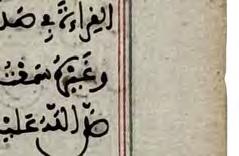 القراءة في هذ
وغيرها سمعت
صلى الله عليه